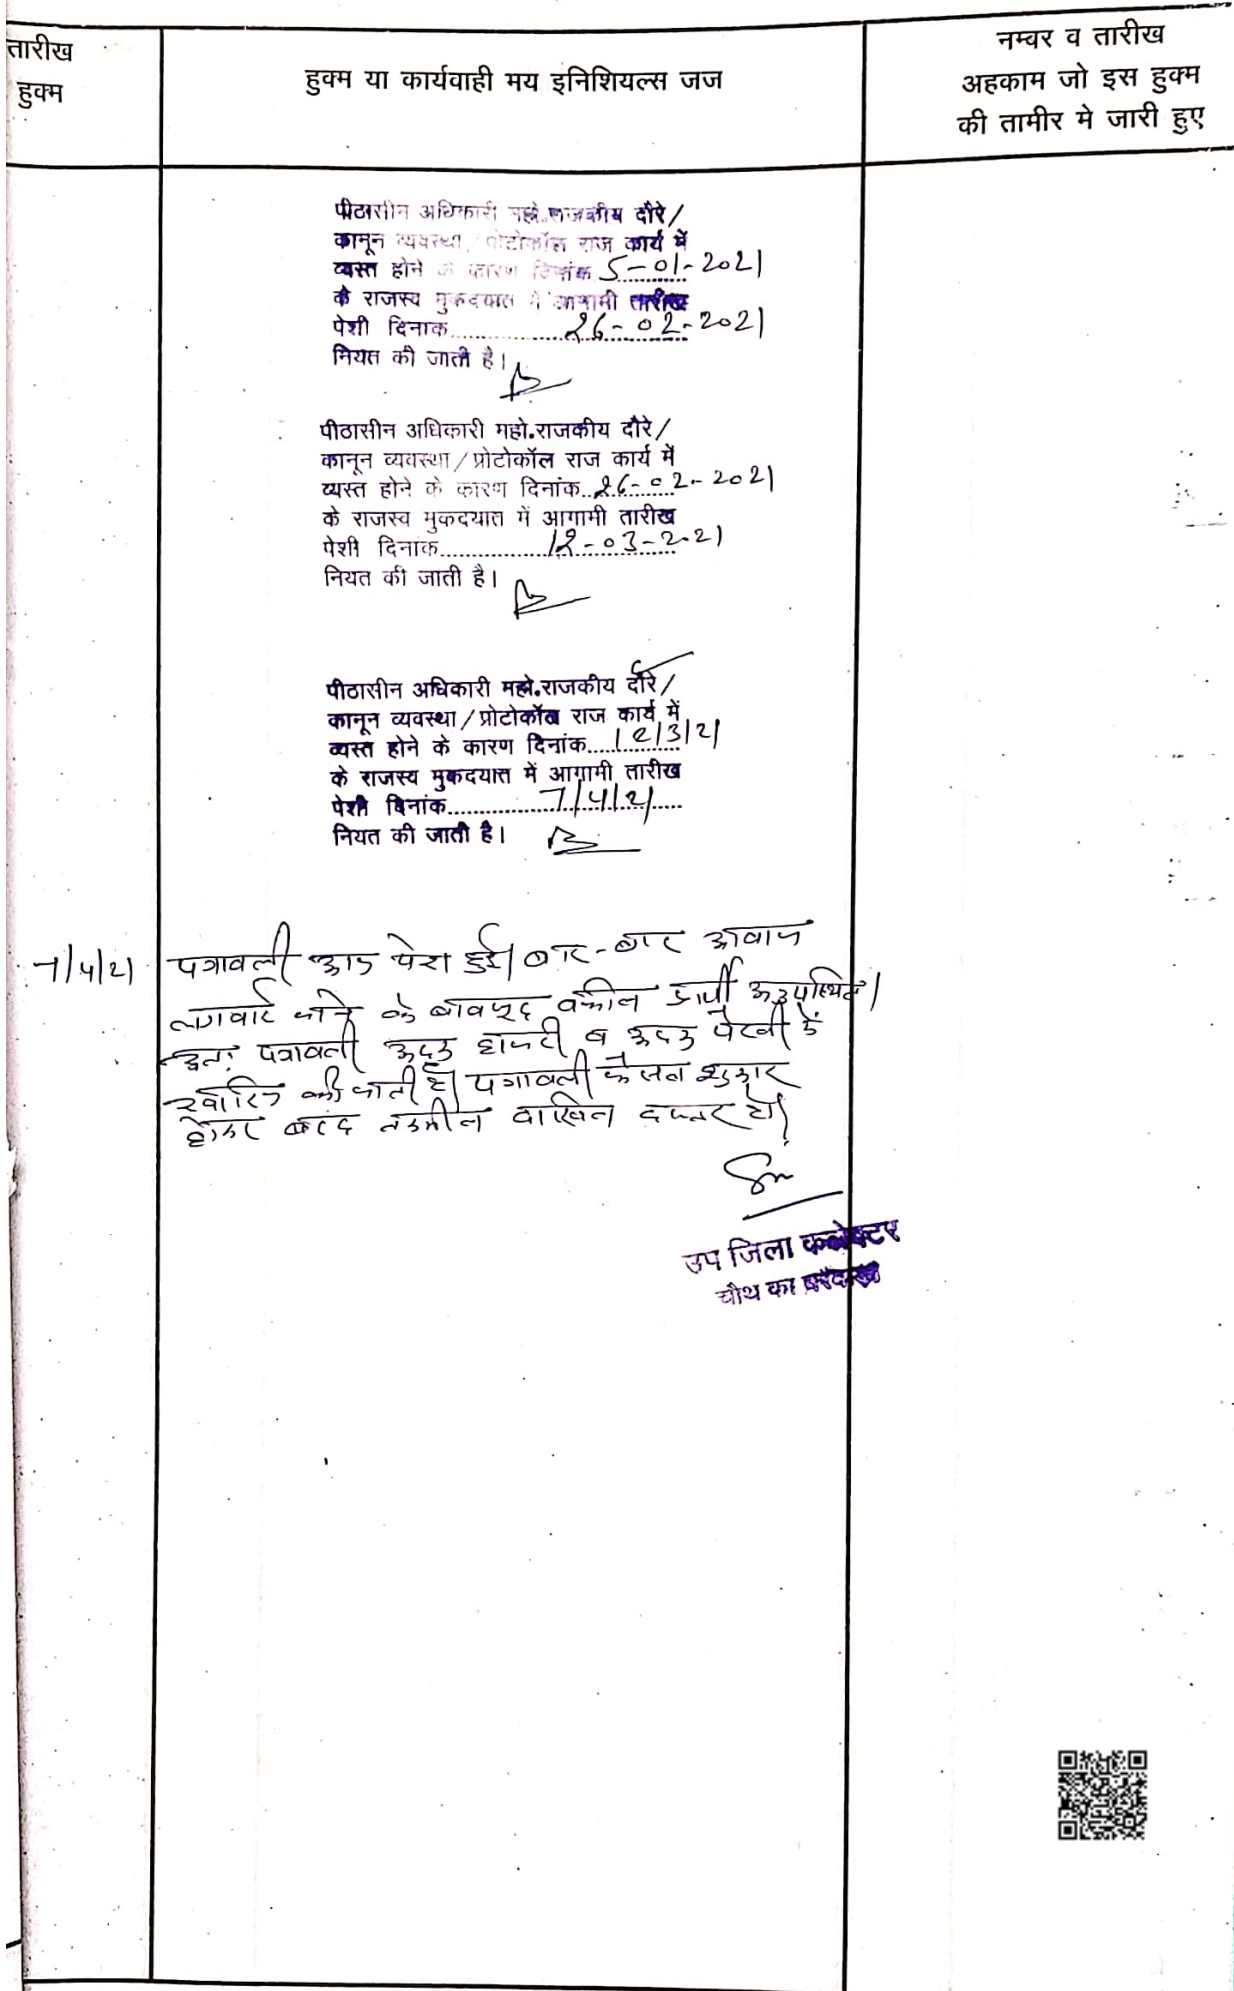 तारीख
हुक्म
हुक्म या कार्यवाही मय इनिशियल्स जज
नम्बर व तारीख
अहकाम जो इस हुक्म
की तामीर मे जारी हुए
पीठासीन अधिकारी महो.राजकीय दौरे/
कानून व्यवस्था/प्रोटोकॉल राज कार्य में
व्यस्त होने के कारण दिनांक 5-01-2021
के राजस्व मुकदयात में आगामी तारीख
पेशी दिनाक..............26-02-2021
नियत की जाती है।
पीठासीन अधिकारी महो.राजकीय दौरे/
कानून व्यवस्था/प्रोटोकॉल राज कार्य में
व्यस्त होने के कारण दिनांक..26-02-2021
के राजस्व मुकदयात में आगामी तारीख
पेशी दिनांक..............12-03-2021
नियत की जाती है।
पीठासीन अधिकारी महो.राजकीय दौरे/
कानून व्यवस्था/प्रोटोकॉल राज कार्य में
व्यस्त होने के कारण दिनांक....12/3/21
के राजस्व मुकदयात में आगामी तारीख
पेशी दिनांक..............7/4/21
नियत की जाती है।
7/4/21 पत्रावली आज पेश हुई। बार-बार आवाज
लगवाई जाने के बावजूद वकील प्रार्थी अनुपस्थित।
अतः पत्रावली अदम हाजरी व अदम पैरवी में
खारिज की जाती है। पत्रावली फैसल शुमार
होकर बाद तकमील दाखिल दफ्तर हो।
उप जिला कलेक्टर
चौथ का बरवाड़ा